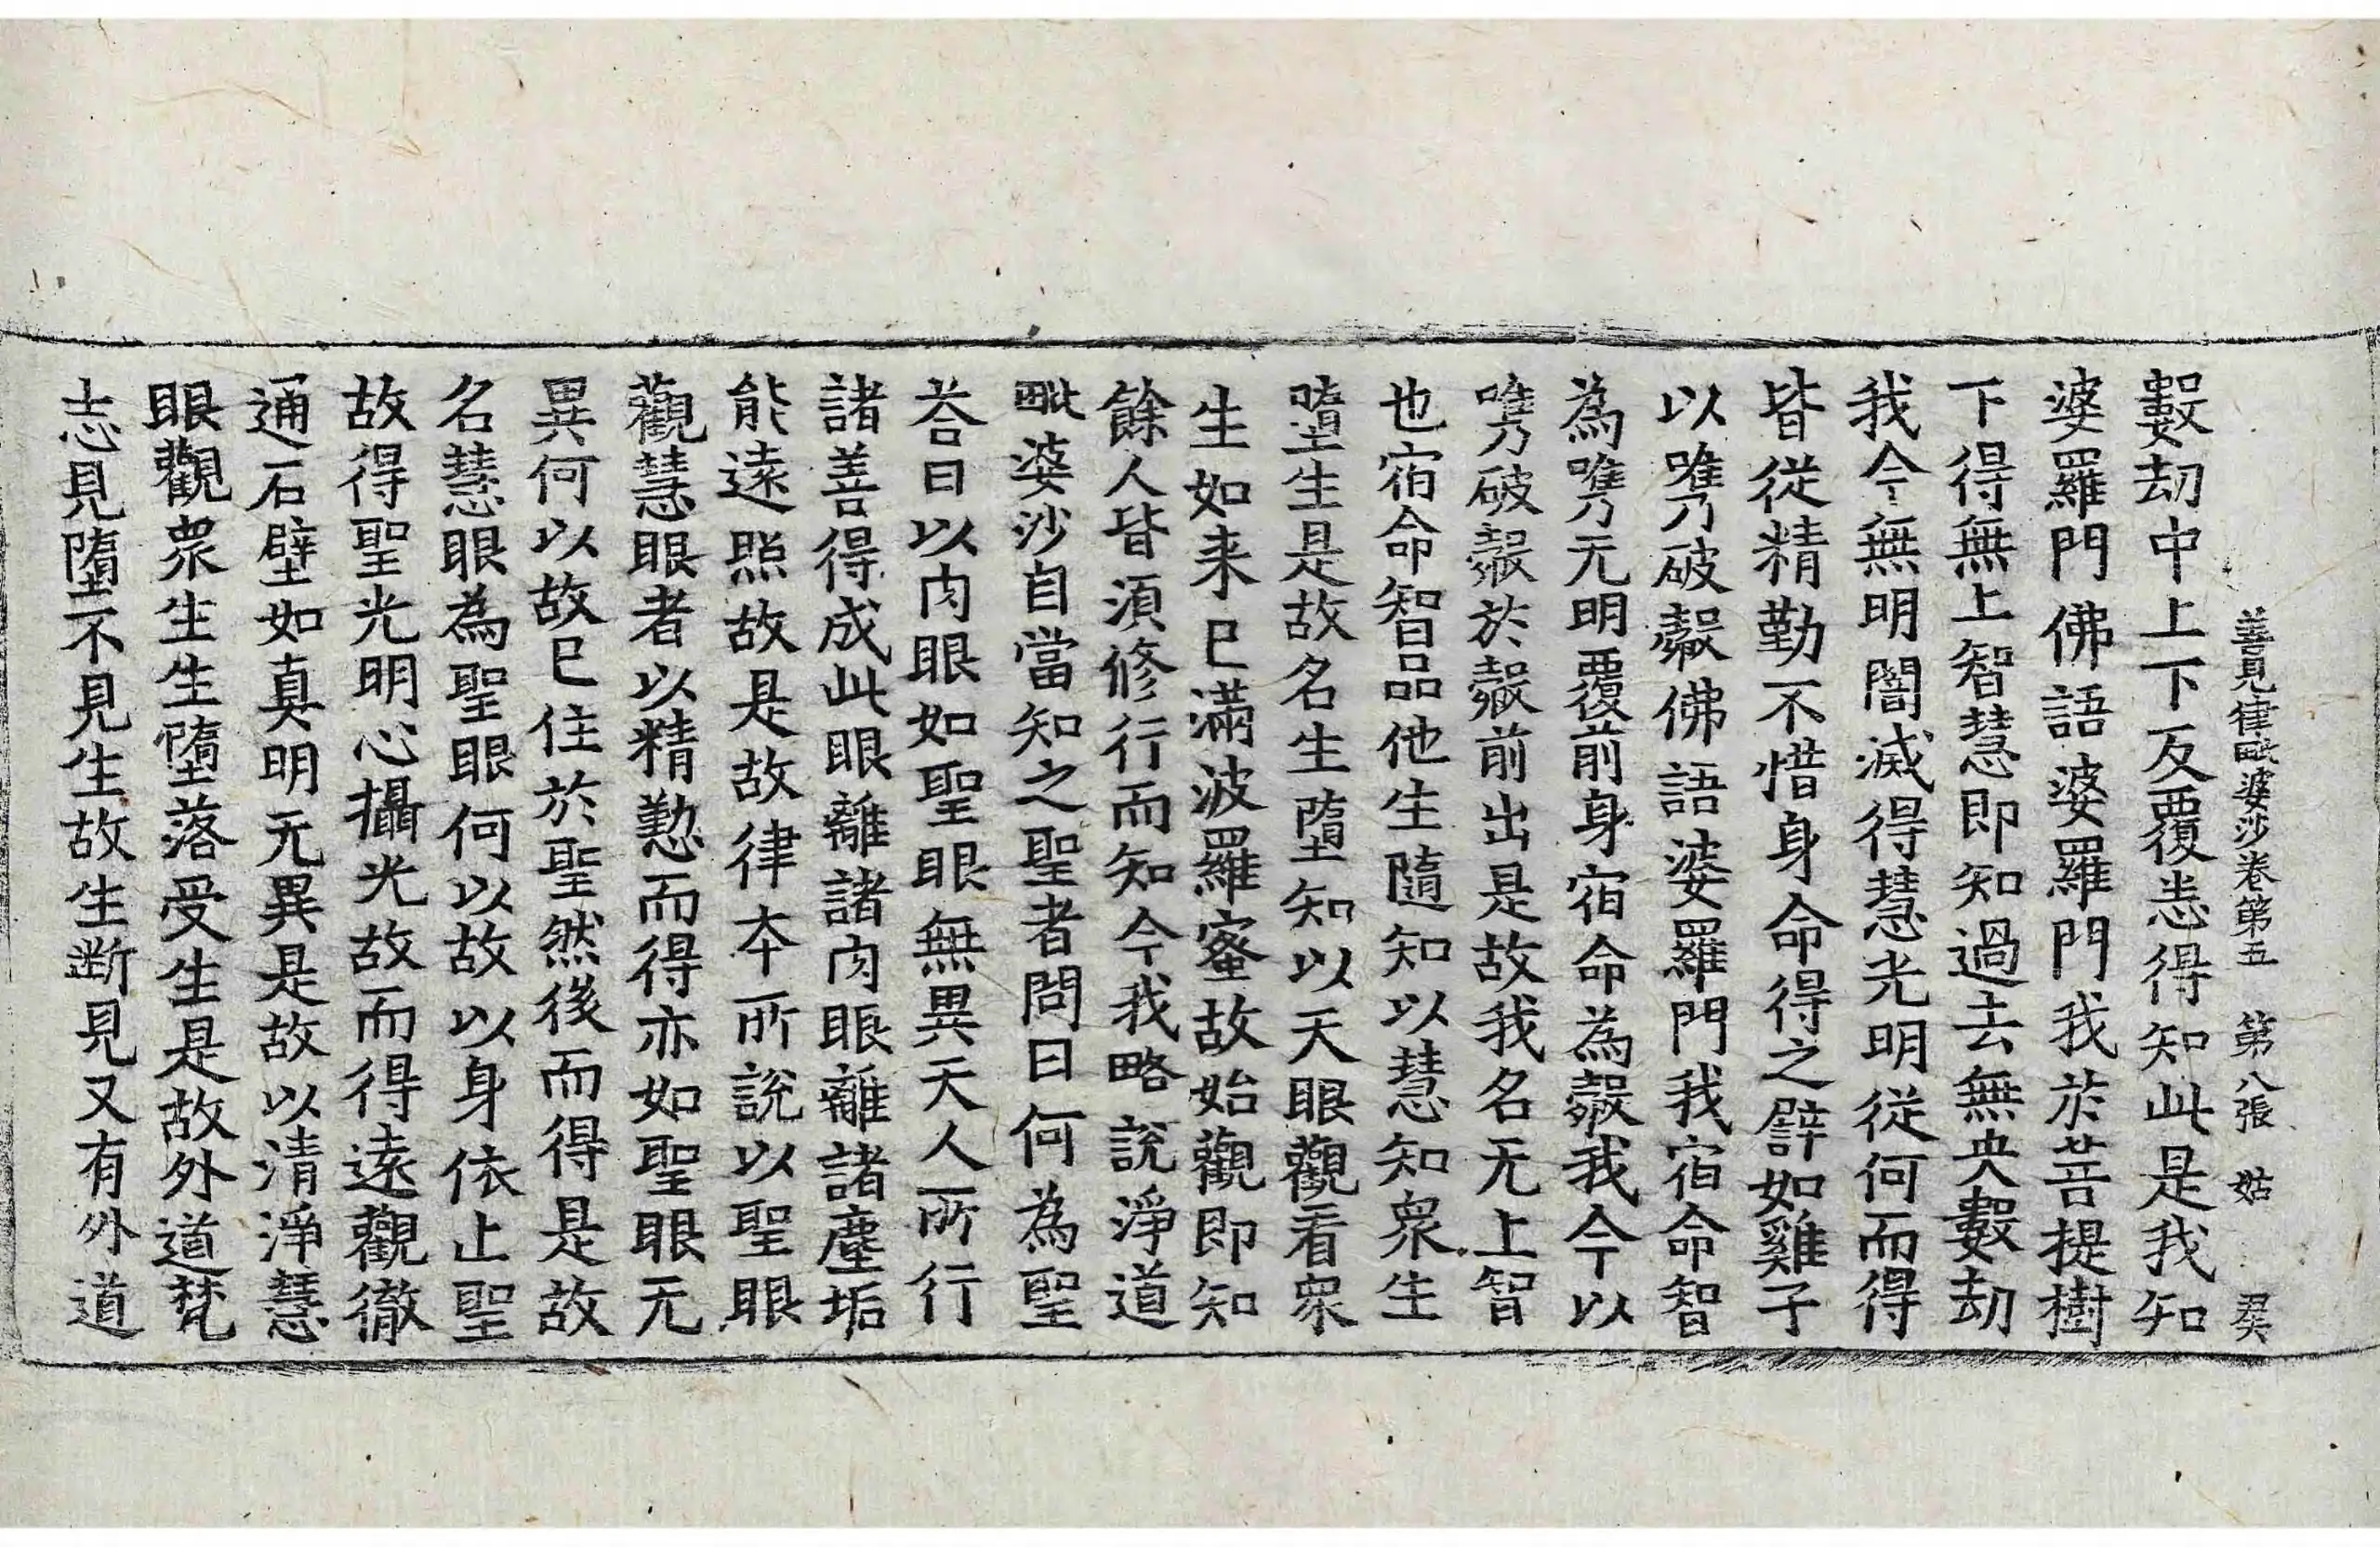 善見律毗婆沙卷第五 第八張 姑 君美
數劫中上下反覆悉得知此是我知
婆羅門佛語婆羅門我於菩提樹
下得無上智慧即知過去無央數劫
我今無明闇滅得慧光明從何而得
皆從精勤不惜身命得之譬如雞子
以㗱破㲉佛語婆羅門我宿命智
為㗱无明覆前身宿命為㲉我今以
㗱破㲉於㲉前出是故我名无上智
也宿命智品他生隨知以慧知衆生
墮生是故名生墮知以天眼觀看衆
生如来已滿波羅蜜故始觀即知
餘人皆須修行而知今我略說淨道
毗婆沙自當知之聖者問曰何為聖
荅曰以肉眼如聖眼無異天人所行
諸善得成此眼離諸肉眼離諸塵垢
能遠照故是故律本所說以聖眼
觀慧眼者以精懃而得亦如聖眼无
異何以故已住於聖然後而得是故
名慧眼為聖眼何以故以身依止聖
故得聖光明心攝光故而得遠觀徹
通石壁如真明无異是故以清淨慧
眼觀衆生生墮落受生是故外道梵
志見墮不見生故生断見又有外道